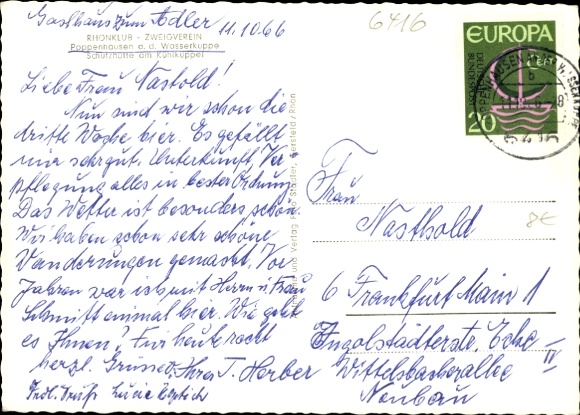 Gasthaus zum Adler 11.10.66
RHÖNKLUB - ZWEIGVEREIN
Poppenhausen a. d. Wasserkuppe
Schutzhütte am Kühlküppel
Liebe Frau Nasthold!
Nun sind wir schon die
dritte Woche hier. Es gefällt
mir sehr gut. Unterkunft, Ver
pflegung alles in bester Ordnung.
Das Wetter ist besonders schön.
Wir haben schon sehr schöne
Wanderungen gemacht. Vor
Jahren war ich mit Herrn u. Frau
Schmitt einmal hier. Wie geht
es Ihnen? Für heute recht
herzl. Grüsse, Ihre T. Herber
Frdl. Grüße
und Verlag
Rhön
6416
EUROPA
CEPT
DEUTSCHE
BUNDESPOST
20
8€
Frau
Nasthold
6 Frankfurt Main 1
Ingolstädterstr. Ecke
Wittelsbacherallee IV
Neubau